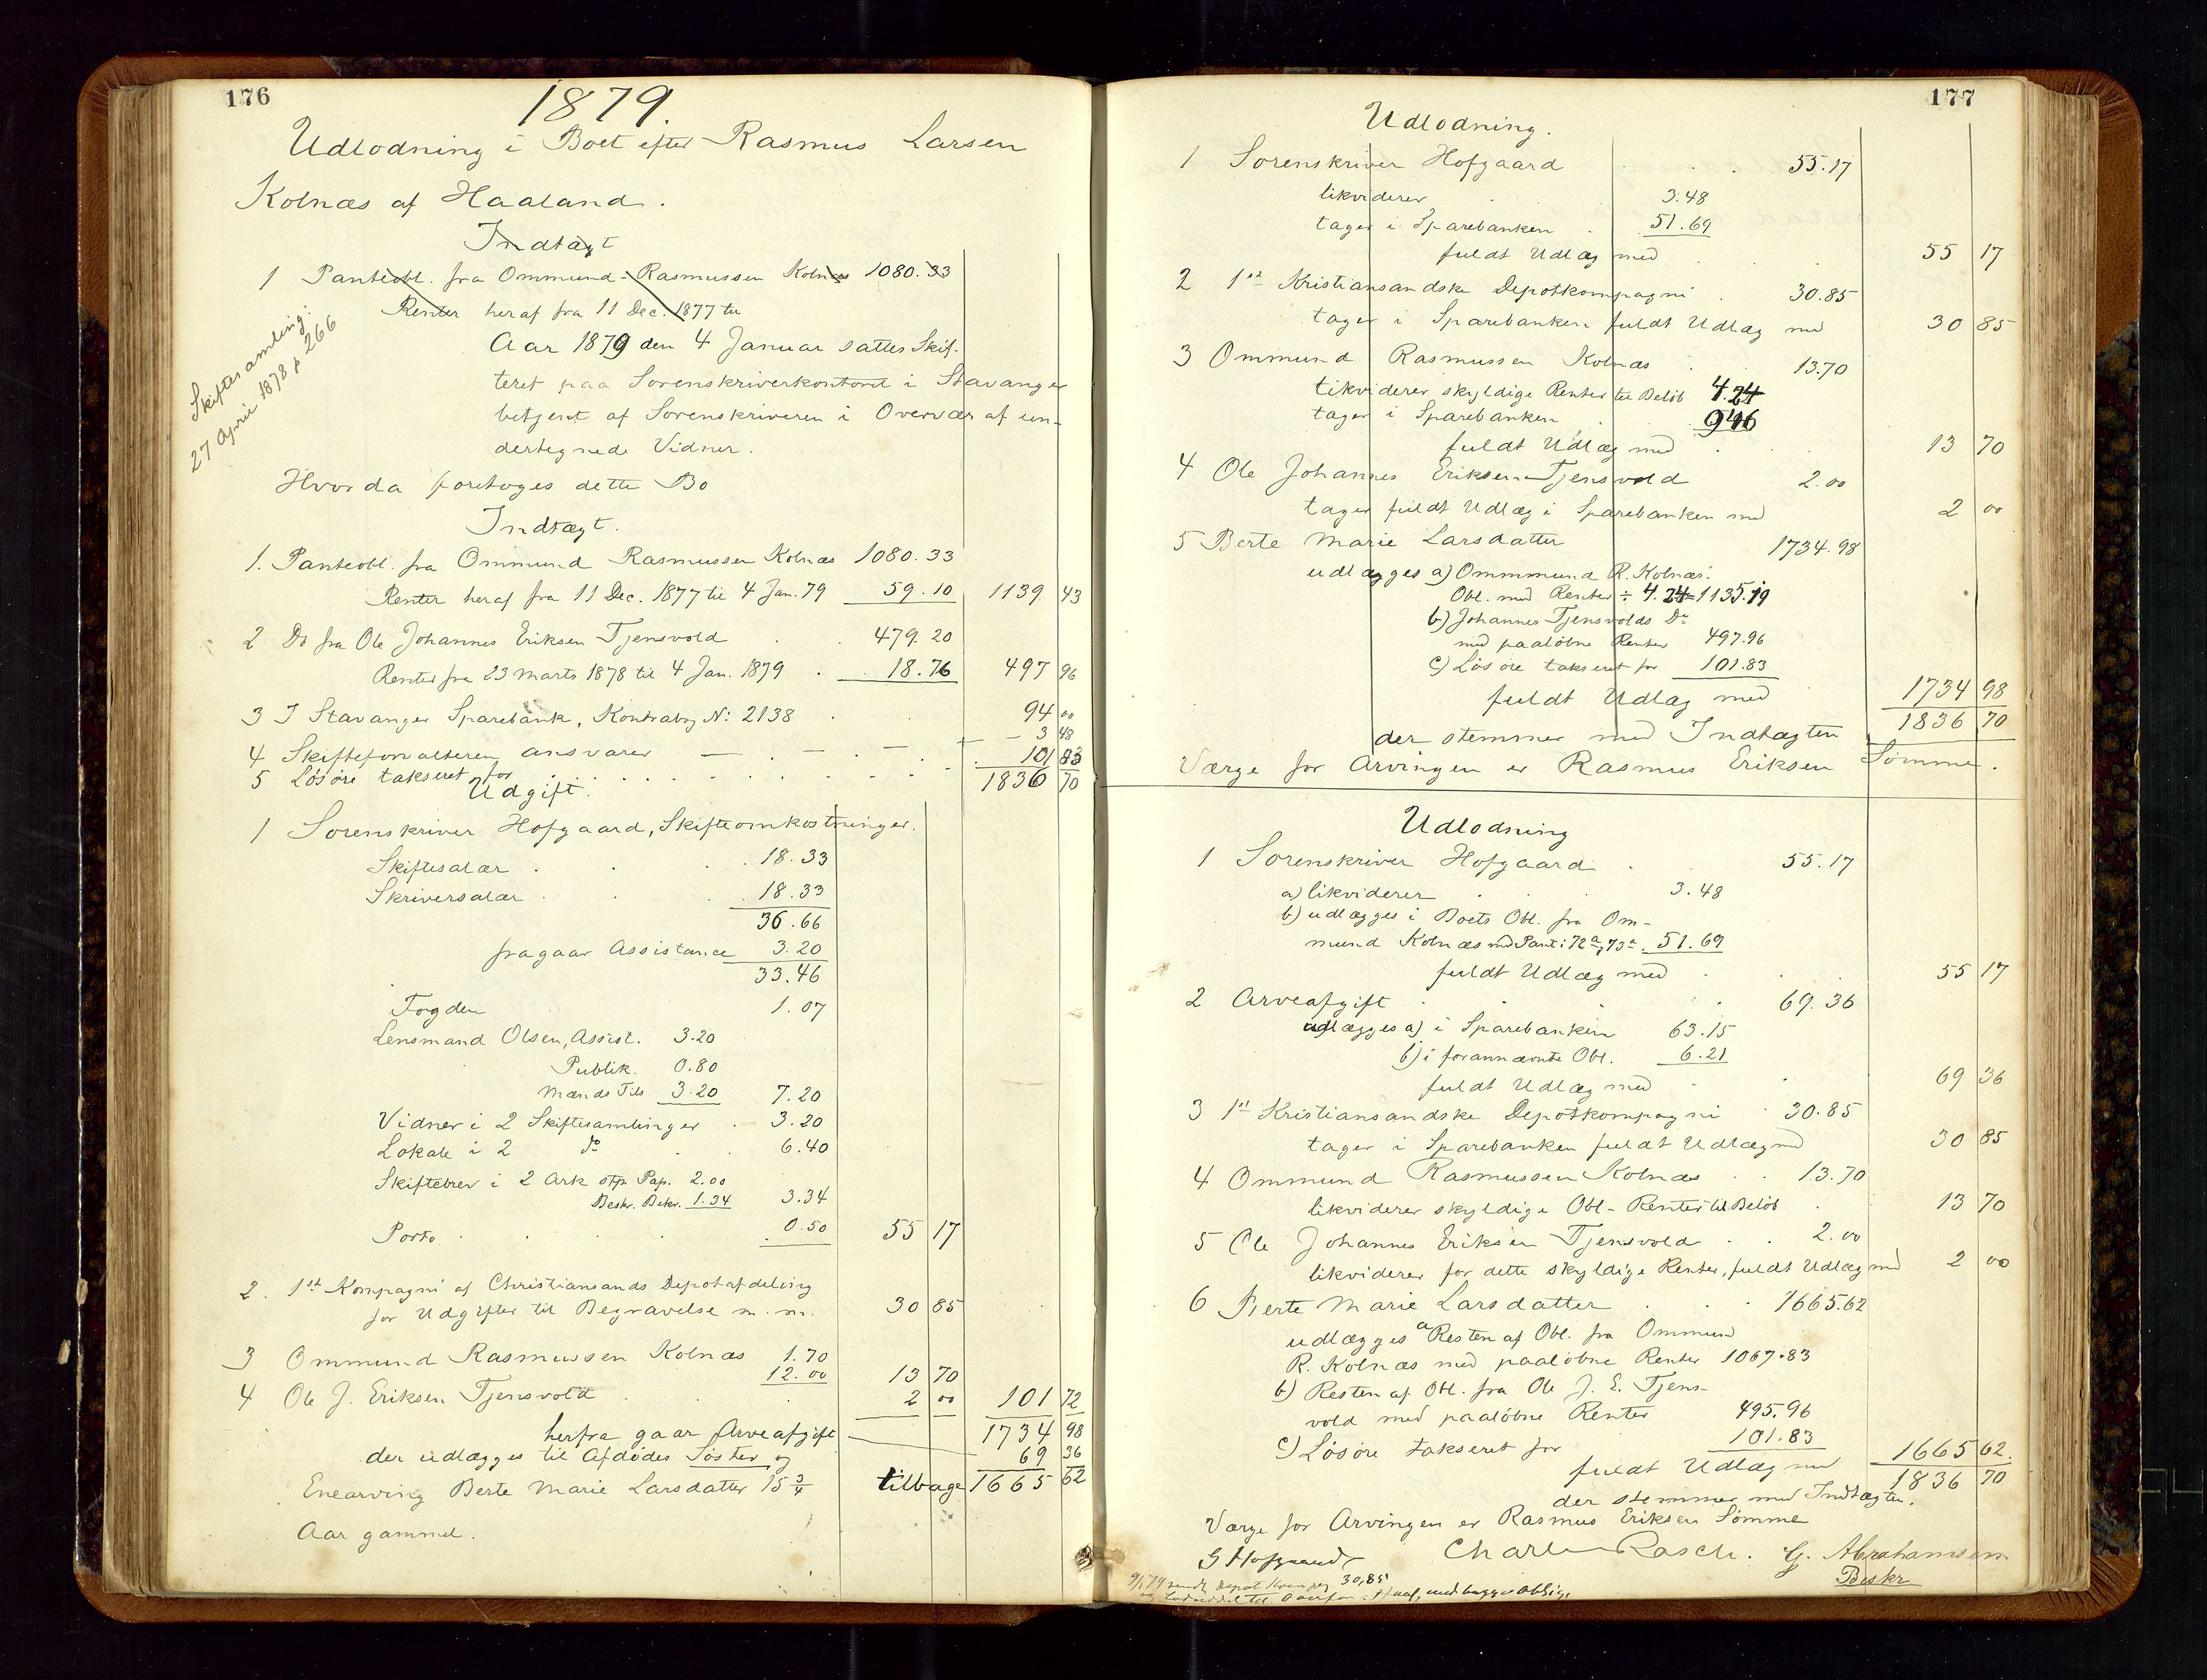 176
1879.
Udlodning i Boet efter Rasmus Larsen
Kolnæs af Haaland.
Indtægt
1 Panteobl. fra Ommund Rasmussen Kolnæs 1080.33
Renter heraf fra 11 Dec. 1877 til
Skiftesamling:
27 April 1878 p 266
Aar 1879 den 4 Januar sattes Skif-
teret paa Sorenskriverkontoret i Stavanger
betjent af Sorenskriveren i Overvær af un-
dertegnede Vidner.
Hvor da foretoges dette Bo
Indtægt.
1. Panteobl. fra Ommund Rasmussen Kolnæs 1080.33
Renter heraf fra 11 Dec. 1877 til 4 Jan. 79 59.10 1139 43
2 Do fra Ole Johannes Eriksen Tjensvold 479.20
Renter fra 23 Marts 1878 til 4 Jan. 1879 18.76 497 96
3 I Stavanger Sparebank, Kontrabog No: 2138 94 00
4 Skifteforvalteren ansvarer — 3 48
5 Løsøre takseret for 101 83
1836 70
Udgift.
1 Sorenskriver Hofgaard, Skifteomkostninger.
Skiftesalær 18.33
Skriversalær 18.33
36.66
fragaar Assistance 3.20
33.46
Fogden 1.07
Lensmand Olsen, Assist. 3.20
Publik. 0.80
Mænds Tils 3.20 7.20
Vidner i 2 Skiftesamlinger 3.20
Lokale i 2 do 6.40
Skiftebrev i 2 Ark stp. Pap. 2.00
Beskr. Bekr. 1.34 3.34
Porto 0.50 55 17
2. 1st Kompagni af Christiansands Depotafdeling
for Udgifter til Begravelse m.m. 30 85
3 Ommund Rasmussen Kolnæs 1.70
12.00 13 70
4 Ole J. Eriksen Tjensvold 2 00 101 72
1734 98
herfra gaar Arveafgift 69 36
der udlægges til Afdødes Søster og tilbage 1665 62
Enearving Berte Marie Larsdatter 15 3/4
Aar gammel.
177
Udlodning.
1 Sorenskriver Hofgaard 55.17
likviderer 3.48
tager i Sparebanken 51.69
fuldt Udlæg med 55 17
2 1st Kristiansandske Depotkompagni 30.85
tager i Sparebanken fuldt Udlæg med 30 85
3 Ommund Rasmussen Kolnæs 13.70
likviderer skyldige Renter til Beløb 4.24
tager i Sparebanken 946
fuldt Udlæg med 13 70
4 Ole Johannes Eriksen Tjensvold 2.00
tager fuldt Udlæg i Sparebanken med 2 00
5 Berte Marie Larsdatter 1734.98
udlægges a) Ommmund R. Kolnæs'
Obl. med Renter ÷ 4.24=1135.19
b) Johannes Tjensvolds Do
med paaløbne Renter 497.96
c) Løsøre takseret for 101.83
fuldt Udlæg med 1734 98
1836 70
der stemmer med Indtægten
Værge for Arvingen er Rasmus Eriksen Sømme.
Udlodning
1 Sorenskriver Hofgaard 55.17
a) likviderer 3.48
b) udlægges i Boets Obl. fra Om-
mund Kolnæs med Pant i 72a, 73a 51.69
fuldt Udlæg med 55 17
2 Arveafgift 69.36
udlægges a) i Sparebanken 63.15
b) i forannævnte Obl. 6.21
fuldt Udlæg med 69 36
3 1st Kristiansandske Depotkompagni 30.85
tager i Sparebanken fuldt Udlæg med 30 85
4 Ommund Rasmussen Kolnæs 13.70
likviderer skyldige Obl-Renter til Beløb 13 70
5 Ole Johannes Eriksen Tjensvold 2.00
likviderer for dette skyldige Renter, fuldt Udlæg med 2 00
6 Berte Marie Larsdatter 1665.62
udlægges a Resten af Obl. fra Ommund
R. Kolnæs med paaløbne Renter 1067.83
b) Resten af Obl. fra Ole J. E. Tjens-
vold med paaløbne Renter 495.96
c) Løsøre takseret for 101.83
fuldt Udlæg med 1665 62.
1836 70
der stemmer med Indtægten.
Værge for Arvingen er Rasmus Eriksen Sømme
G Hofgaard Charles Rasch. G. Abrahamsen
Beskr
9/1 79 sendt Depot Kompag 30,85